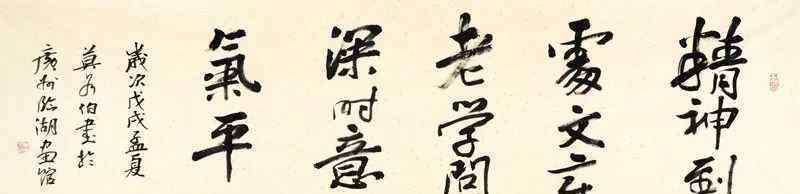 精神到
處文章
老学問
深时意
氣平
歲次戊戌孟夏
莫各伯書於
廣州臨湖畫館